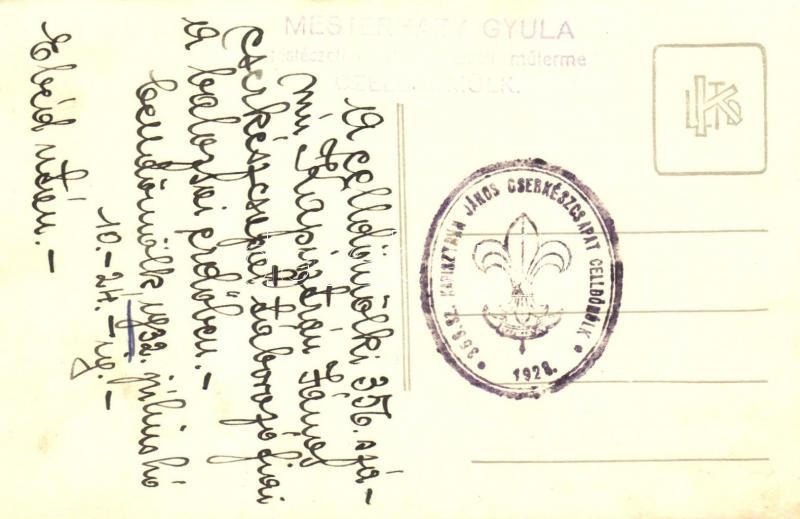 MESTERHÁZY GYULA
műterme
CZELLDÖMÖLK.
A celldömölki 356. szá-
mú Kapisztrán János
Cserkészcsapat táborozó fiai
A balozsai erdőben.-
Celldömölk 1932. július hó
10.-24.-ig.-
Ebéd után.-
356.SZ. KAPISZTRÁN JÁNOS CSERKÉSZCSAPAT CELLDÖMÖLK
1928.